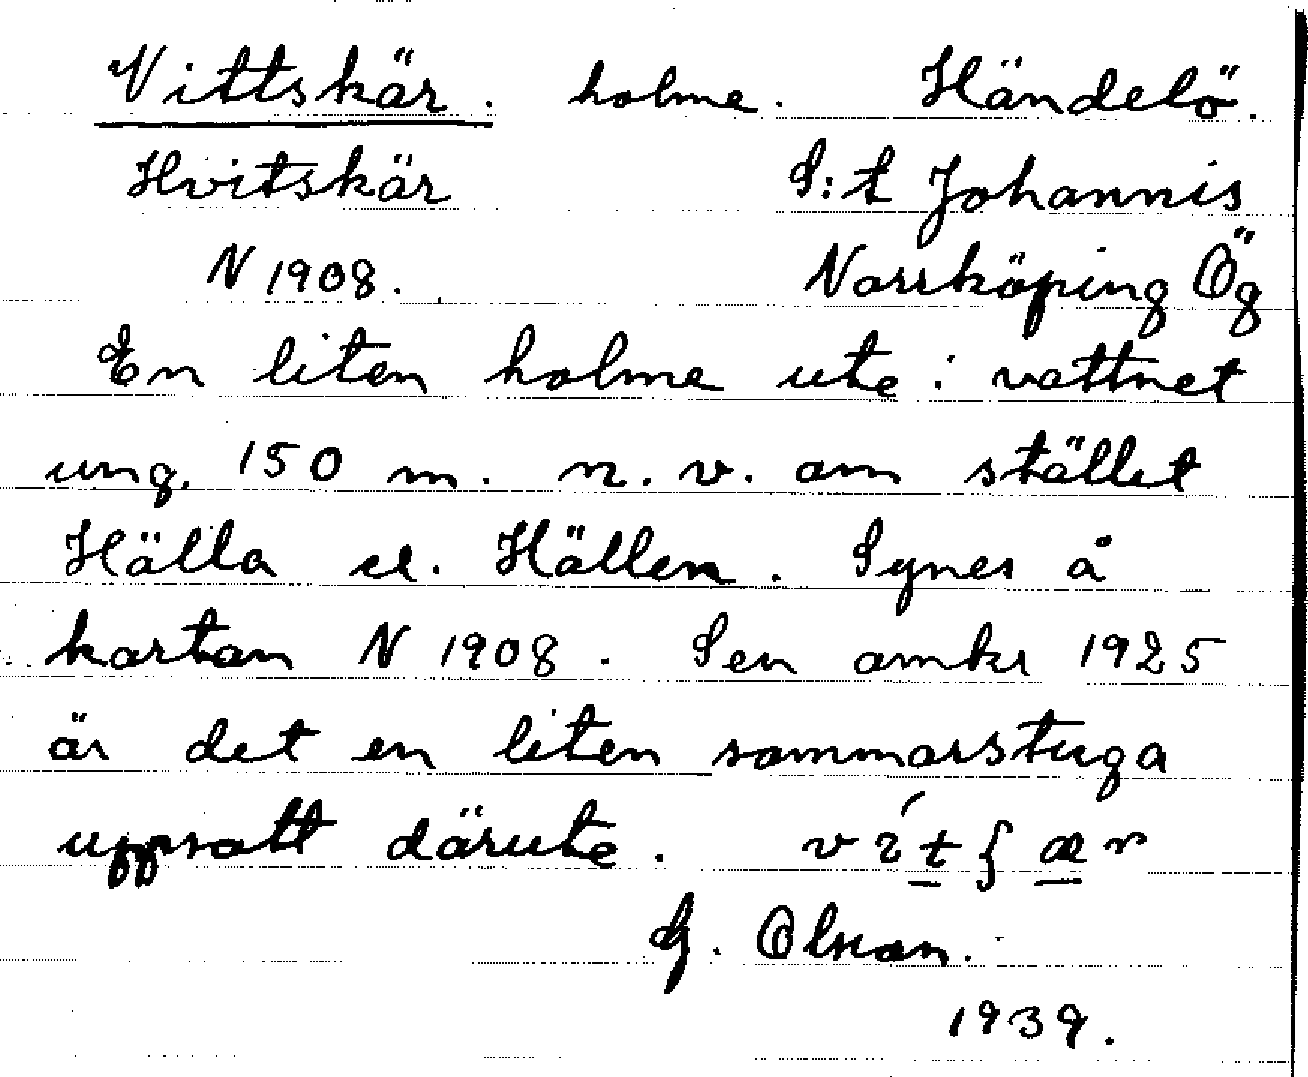 Vittskär. holme. Händelö.
Hvitskär S:t Johannis
N 1908. Norrköping Ög
En liten holme ute i vattnet
ung. 150 m. n.v. om stället
Hälla el. Hällen. Synes å
kartan N 1908. Sen omkr 1925
är det en liten sommarstuga
uppsatt därute.
G. Olsson.
1939.